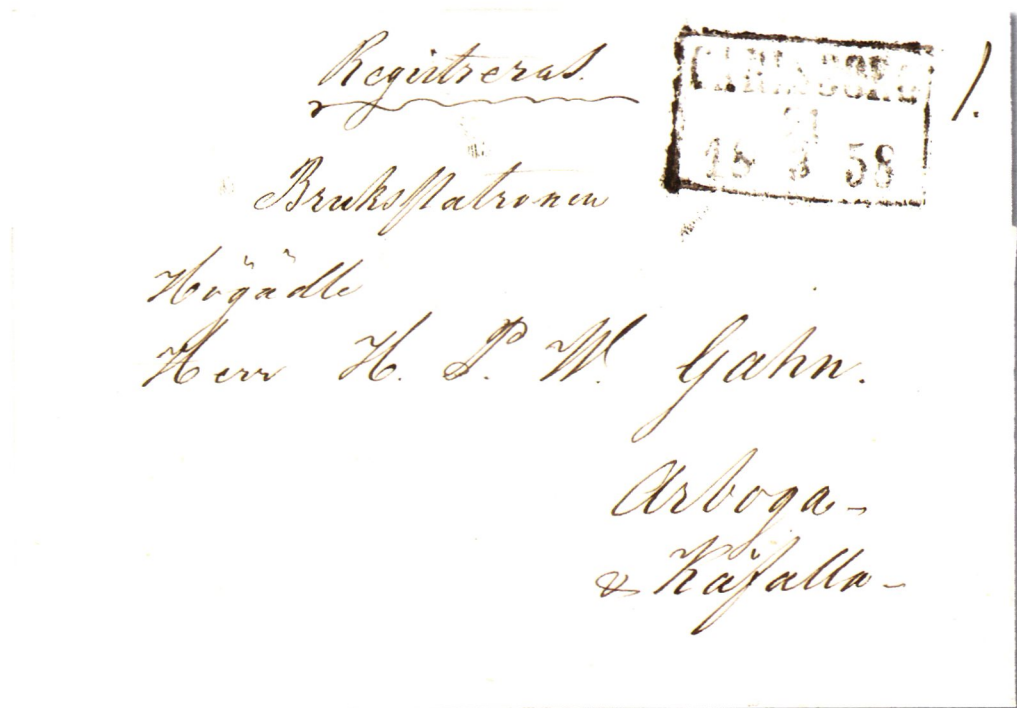 Registreras.
CARLSBORG
21
18 3 58
1.
Brukspatronen
Högädle
Herr H. P. W. Gahn.
Arboga-
& Käfalla-